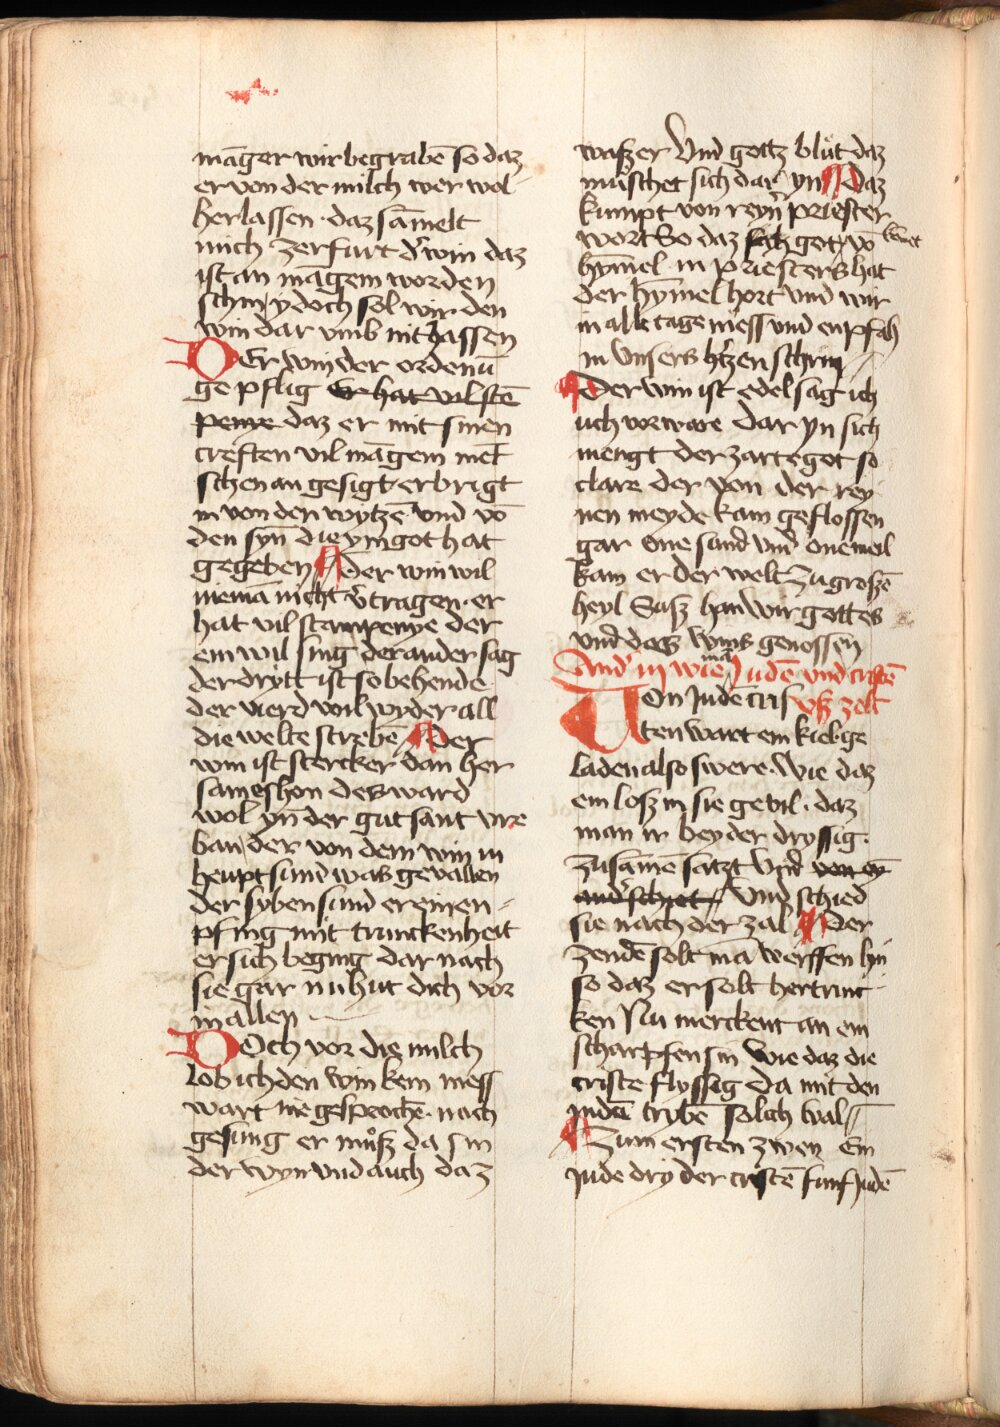 māger wir begrabē so daz
er von der milch wer wol
herlassen · daz sāmelt
mich zerfurt d' win daz
ist an māgem worden
schin ydoch sol wir den
win dar vmb nit hassen
DEr win der ordenū
ge pflig er hat vil stē
penye daz er mit sinen
creften vil māgem mēt
schen an gesigt er brigt
in von den wytzē vnd vō
den syn̄ die ym got hat
gegeben ¶ Der win wil
niemā nicht v'tragen · er
hat vil stampenye der
ein wil sing der ander sag
der drytt ist so behende
der vierd wil wyder all
die welte strebē ¶ Der
win ist stercker dan her
sameshon des ward
wol yn̄ der gut sant vre
ban der von dem win in
heupt sund was gevallen
der syben sund er einen
pfing mit trunckenheit
er sich beging dar nach
sie gar nu hut dich vor
in allen
DOch vor die milch
lob ich den win kein mess
wart nie gesprochē · noch
gesung er mu̇sz da sin
der wyn vnd auch daz
waszer Vnd gottz blůt daz
můschet sich dar yn ¶ Daz
kumpt von reyn̄ priester
wort So daz sich got vō
hȳmel in priesters hat
der hȳmel hort vnd wir
in alle tage mess vnd enpfah
in vnsers h'tzen schrin
¶ Der win ist edel sag ich
uch vorware dar yn sich
mengt der zarte got so
clare der von der rey
nen meyde kam geflossen
gar one sund vnd one meil
kam er der welt zu groszē
heyl Susz han wir gottes
vnd des wins genossen
And' in wie mā Judē vnd cristē
vsz zelt
VOn Judē cris
ten wart ein kiel ge
laden also swere · Wie daz
ein losz in sie gevil · daz
man ir beyder dryssig ·
zusāmē satzt vnd von ey
and' schiet vnd schied
sie nach der zal ¶ Der
zendē solt mā werffen hin
so daz er solt hertrinc
ken Nu merckent an ein
scharpfen sin Wie daz die
criste flyssig da mit den
judē trybē solich wal
¶ Zum ersten zwen Ein
jude dry der cristē funf Judē